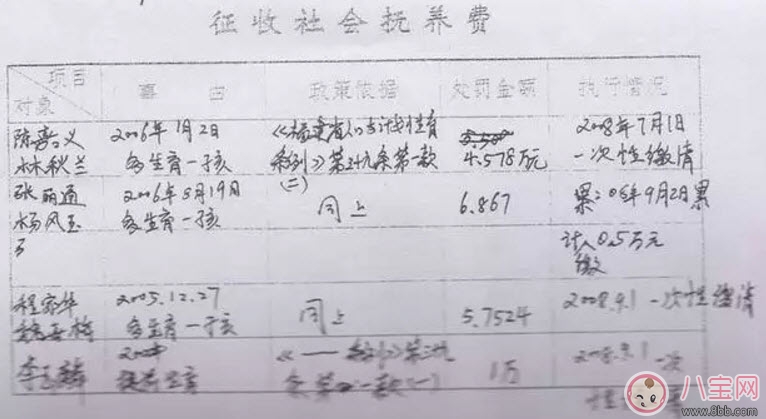 征收社会抚养费
项目 对象 事由 政策依据 处罚金额 执行情况
陈嘉义 2006年1月2日 《福建省人口与计划生育 2008年7月1日
林秋兰 多生育一孩 条例》第39条第一款 4.578万元 一次性缴清
(二)
张丽通 2006年8月19日 同上 6.867 累:06年9月2日累
杨凤玉 多生育一孩
计入0.5万元
缴
程家华 2005.12.27 同上 5.7524 2008.9.1 一次性缴清
多生育一孩
李 提前生育 条第 一款(一) 1万 2008.9.1 一次
性
八宝网
www.8bb.com